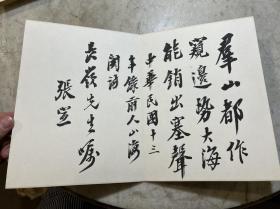 羣山都作
窺邊勢大海
能銷出塞聲
中華民國十三
年錄前人山海
關詩
先生囑
張